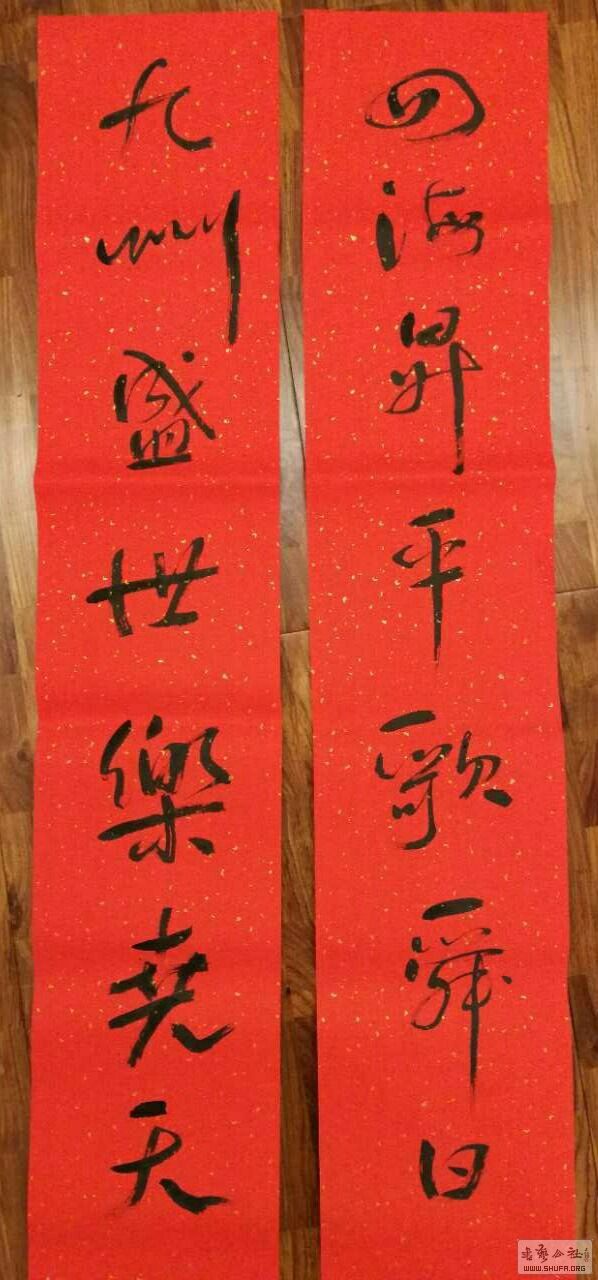 四海昇平歌舜日
九州盛世樂堯天
书艺公社
WWW.SHUFA.ORG